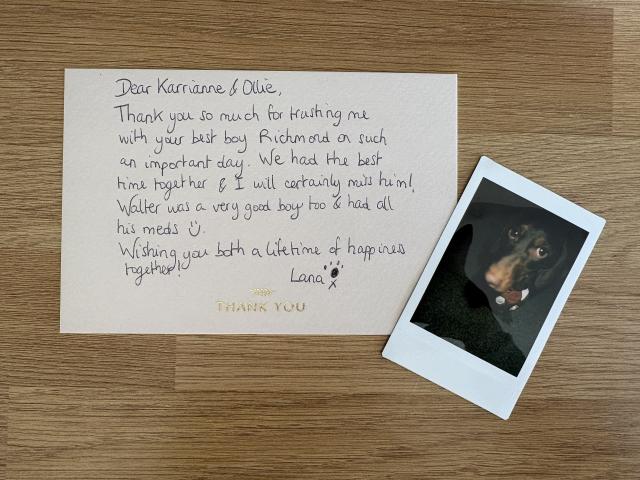 Dear Karrianne & Ollie,
Thank you so much for trusting me
with your best boy Richmond on such
an important day. We had the best
time together & I will certainly miss him!
Walter was a very good boy too & had all
his meds ☺.
Wishing you both a lifetime of happiness
together!
Lana x
THANK YOU